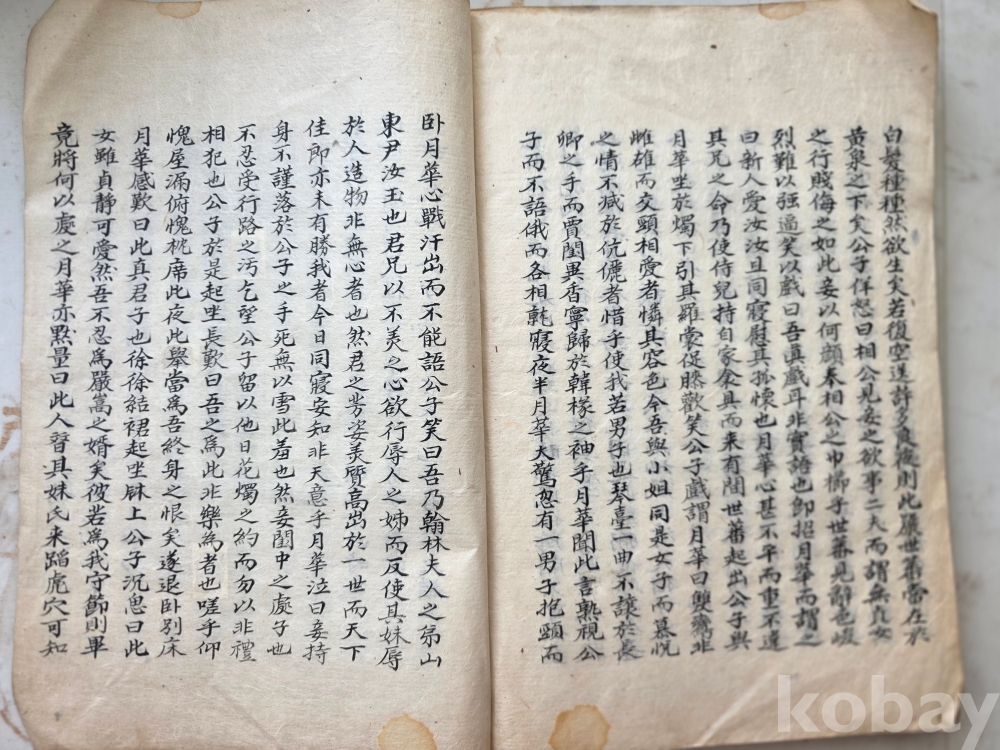 白髮種種然欲生矣若復空送許多歲後則此嚴世蕃當在於
黃泉之下矣公子佯怒曰相公見妾之欲事二夫而謂無貞女
之行賤侮之如此妾以何顏奉相公之巾櫛乎世蕃見辭色峻
烈難以強逼笑以戲曰吾眞戲耳非實語也卽招月華而謂之
曰新人愛汝汝且同寢慰其孤懷也月華心甚不平而重不違
其兄之命乃使侍兒持自家衾具而来有間世蕃起出公子與
月華坐於燭下引其羅裳促膝歡笑公子戲謂月華曰雙鴦非
雌雄而交頸相愛者憐其容色今吾與小姐同是女子而慕悅
之情不减於伉儷者惜乎使我若男子也琴臺一曲不讓於長
卿之手而賈閨異香寧歸於韓椽之袖乎月華聞此言熟視公
子而不語俄而各相就寢夜半月華大驚忽有一男子抱頸而
卧月華心戰汗出而不能語公子笑曰吾乃翰林夫人之弟山
東尹汝玉也君兄以不美之心欲行辱人之姊而反使其妹辱
於人造物非無心者也然君之芳姿美質高出於一世而天下
佳郎亦未有勝我者今日同寢安知非天意乎月華泣曰妾持
身不謹落於公子之手死無以雪此羞也然妾閨中之處子也
不忍受行路之汚乞望公子留以他日花燭之約而勿以非禮
相犯也公子於是起坐長歎曰吾之爲此非樂為者也嗟乎仰
愧屋漏俯愧枕席此夜此擧當爲吾終身之恨矣遂退卧別床
月華感歎曰此真君子也徐徐結裙起坐牀上公子沉思曰此
女雖貞靜可愛然吾不忍爲嚴嵩之婿矣彼若為我守節則畢
竟將何以處之月華亦默量曰此人替其妹氏来蹈虎穴可知
kobay